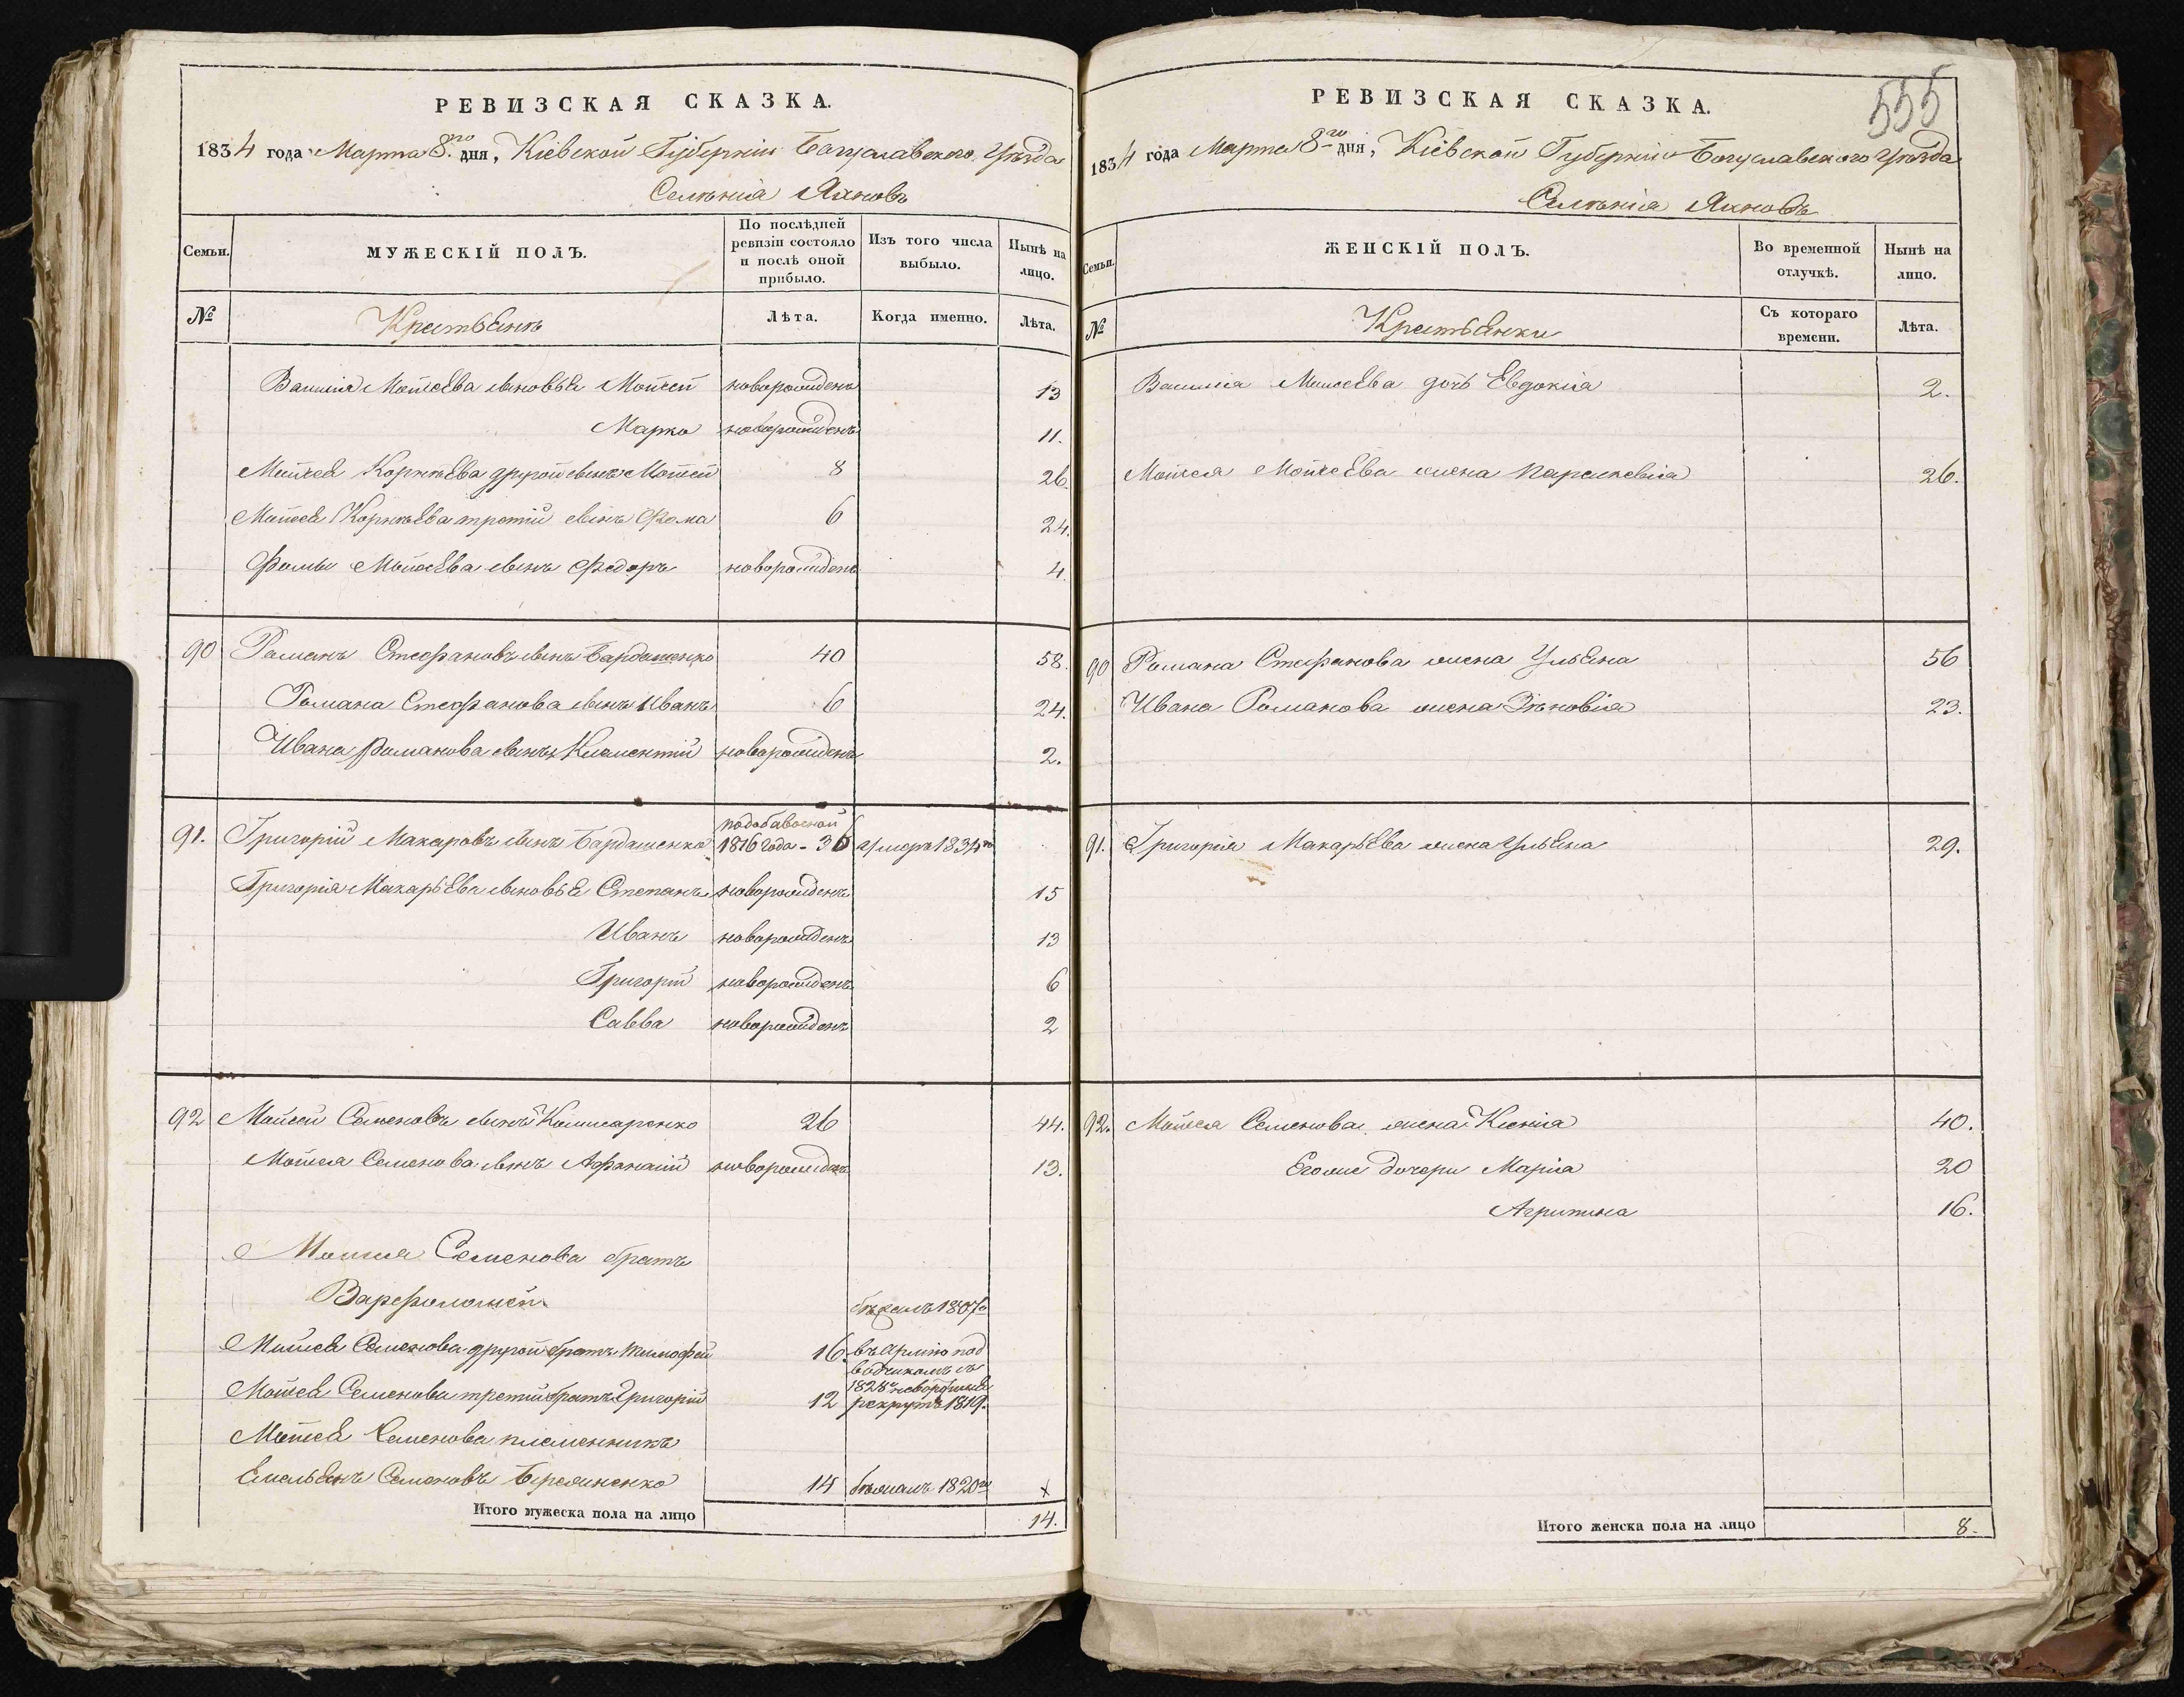 РЕВИЗСКАЯ СКАЗКА.
1834 года Марта 8го дня, Кіевской Губерніи Богуславского Уѣзда
Селѣнія Яхновъ
Семьи.
МУЖЕСКІЙ ПОЛЪ.
По послѣдней ревизіи состояло и послѣ оной прибыло.
Изъ того числа выбыло.
Нынѣ на лицо.
№
Крестьянъ
Лѣта.
Когда именно.
Лѣта.
Василія Мойсеева сыновья Мойсей новорожденъ 13
Марко новорожденъ 11.
Мойсея Корнѣева другой сынъ Мойсей 8 26.
Мойсея Корнѣева третій сынъ Фома 6 24.
Фомы Мойсеева сынъ Федоръ новорожденъ 4.
90 Романъ Стефановъ сынъ Бардашенко 40 58.
Романа Стефанова сынъ Иванъ 6 24.
Ивана Романова сынъ Климентій новорожденъ 2.
91. Григорій Макаровъ сынъ Бардашенко подобавочной 1816 года - 36 умеръ 1834го
Григорія Макарьева сыновья Степанъ новорожденъ 15
Иванъ новорожденъ 13
Григорій новорожденъ 6
Савва новорожденъ 2
92 Мойсей Семеновъ сынъ Комисаренко 26 44.
Мойсея Семенова сынъ Афанасій новорожденъ 13.
Мойсея Семенова братъ
Варфоломей бѣжалъ 1807го
Мойсея Семенова другой братъ Тимофей 16. въ Армію под
водчикомъ съ
1828
Мойсея Семенова третій братъ Григорій 12 рекрутъ 1819.
Мойсея Семенова племенникъ
Емельянъ Семеновъ 14 бѣжалъ 1820го х
Итого мужеска пола на лицо 14.
555
РЕВИЗСКАЯ СКАЗКА.
1834 года Марта 8го дня, Кіевской Губерніи Богуславского Уѣзда
Селѣнія Яхновъ
Семьи.
ЖЕНСКІЙ ПОЛЪ.
Во временной отлучкѣ.
Нынѣ на лицо.
№
Крестьянки
Съ котораго времени.
Лѣта.
Василія Мойсеева дочь Евдокія 2.
Мойсея Мойсеева жена Параскевія 26.
90 Романа Стефанова жена Ульяна 56
Ивана Романова жена Зѣновія 23.
91. Григорія Макарьева жена Ульяна 29.
92. Мойсея Семенова жена Ксенія 40.
Егоже дочери Марія 20
Агрипина 16.
Итого женска пола на лицо 8.